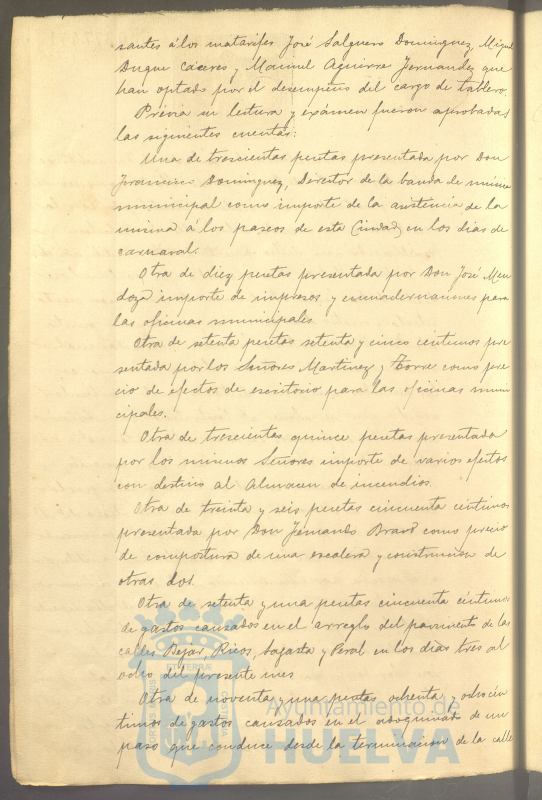 santes á los matarifes José Salguero Dominguez, Miguel
Duque Cáceres y Manuel Aguirre Fernandez que
han optado por el desempeño del cargo de tablero.
Prévia su lectura y exámen fueron aprobadas
las siguientes cuentas:
Una de trescientas pesetas presentada por Don
Francisco Dominguez, Director de la banda de música
municipal como importe de la asistencia de la
misma á los paseos de esta Ciudad, en los dias de
carnaval.
Otra de diez pesetas presentada por Don José Men
doza importe de impresos y encuadernaciones para
las oficinas municipales.
Otra de setenta pesetas setenta y cinco centimos pre
sentada por los Señores Martinez y Torre como pre
cio de efectos de escritorio para las oficinas muni
cipales.
Otra de trescientas quince pesetas presentada
por los mismos Señores importe de varios efectos
con destino al Almacen de incendios.
Otra de treinta y seis pesetas cincuenta céntimos
presentada por Don Fernando Bravo como precio
de compostura de una escalera y construccion de
otras dos.
Otra de setenta y una pesetas cincuenta céntimos
de gastos causados en el arreglo del pavimento de las
calles Bejar, Ricos, Sagasta y Peral en los dias tres al
ocho del presente mes
Otra de noventa y una pesetas ochenta y ocho cén
timos de gastos causados en el adoquinado de un
paso que conduce desde la terminacion de la calle
Ayuntamiento de
HUELVA